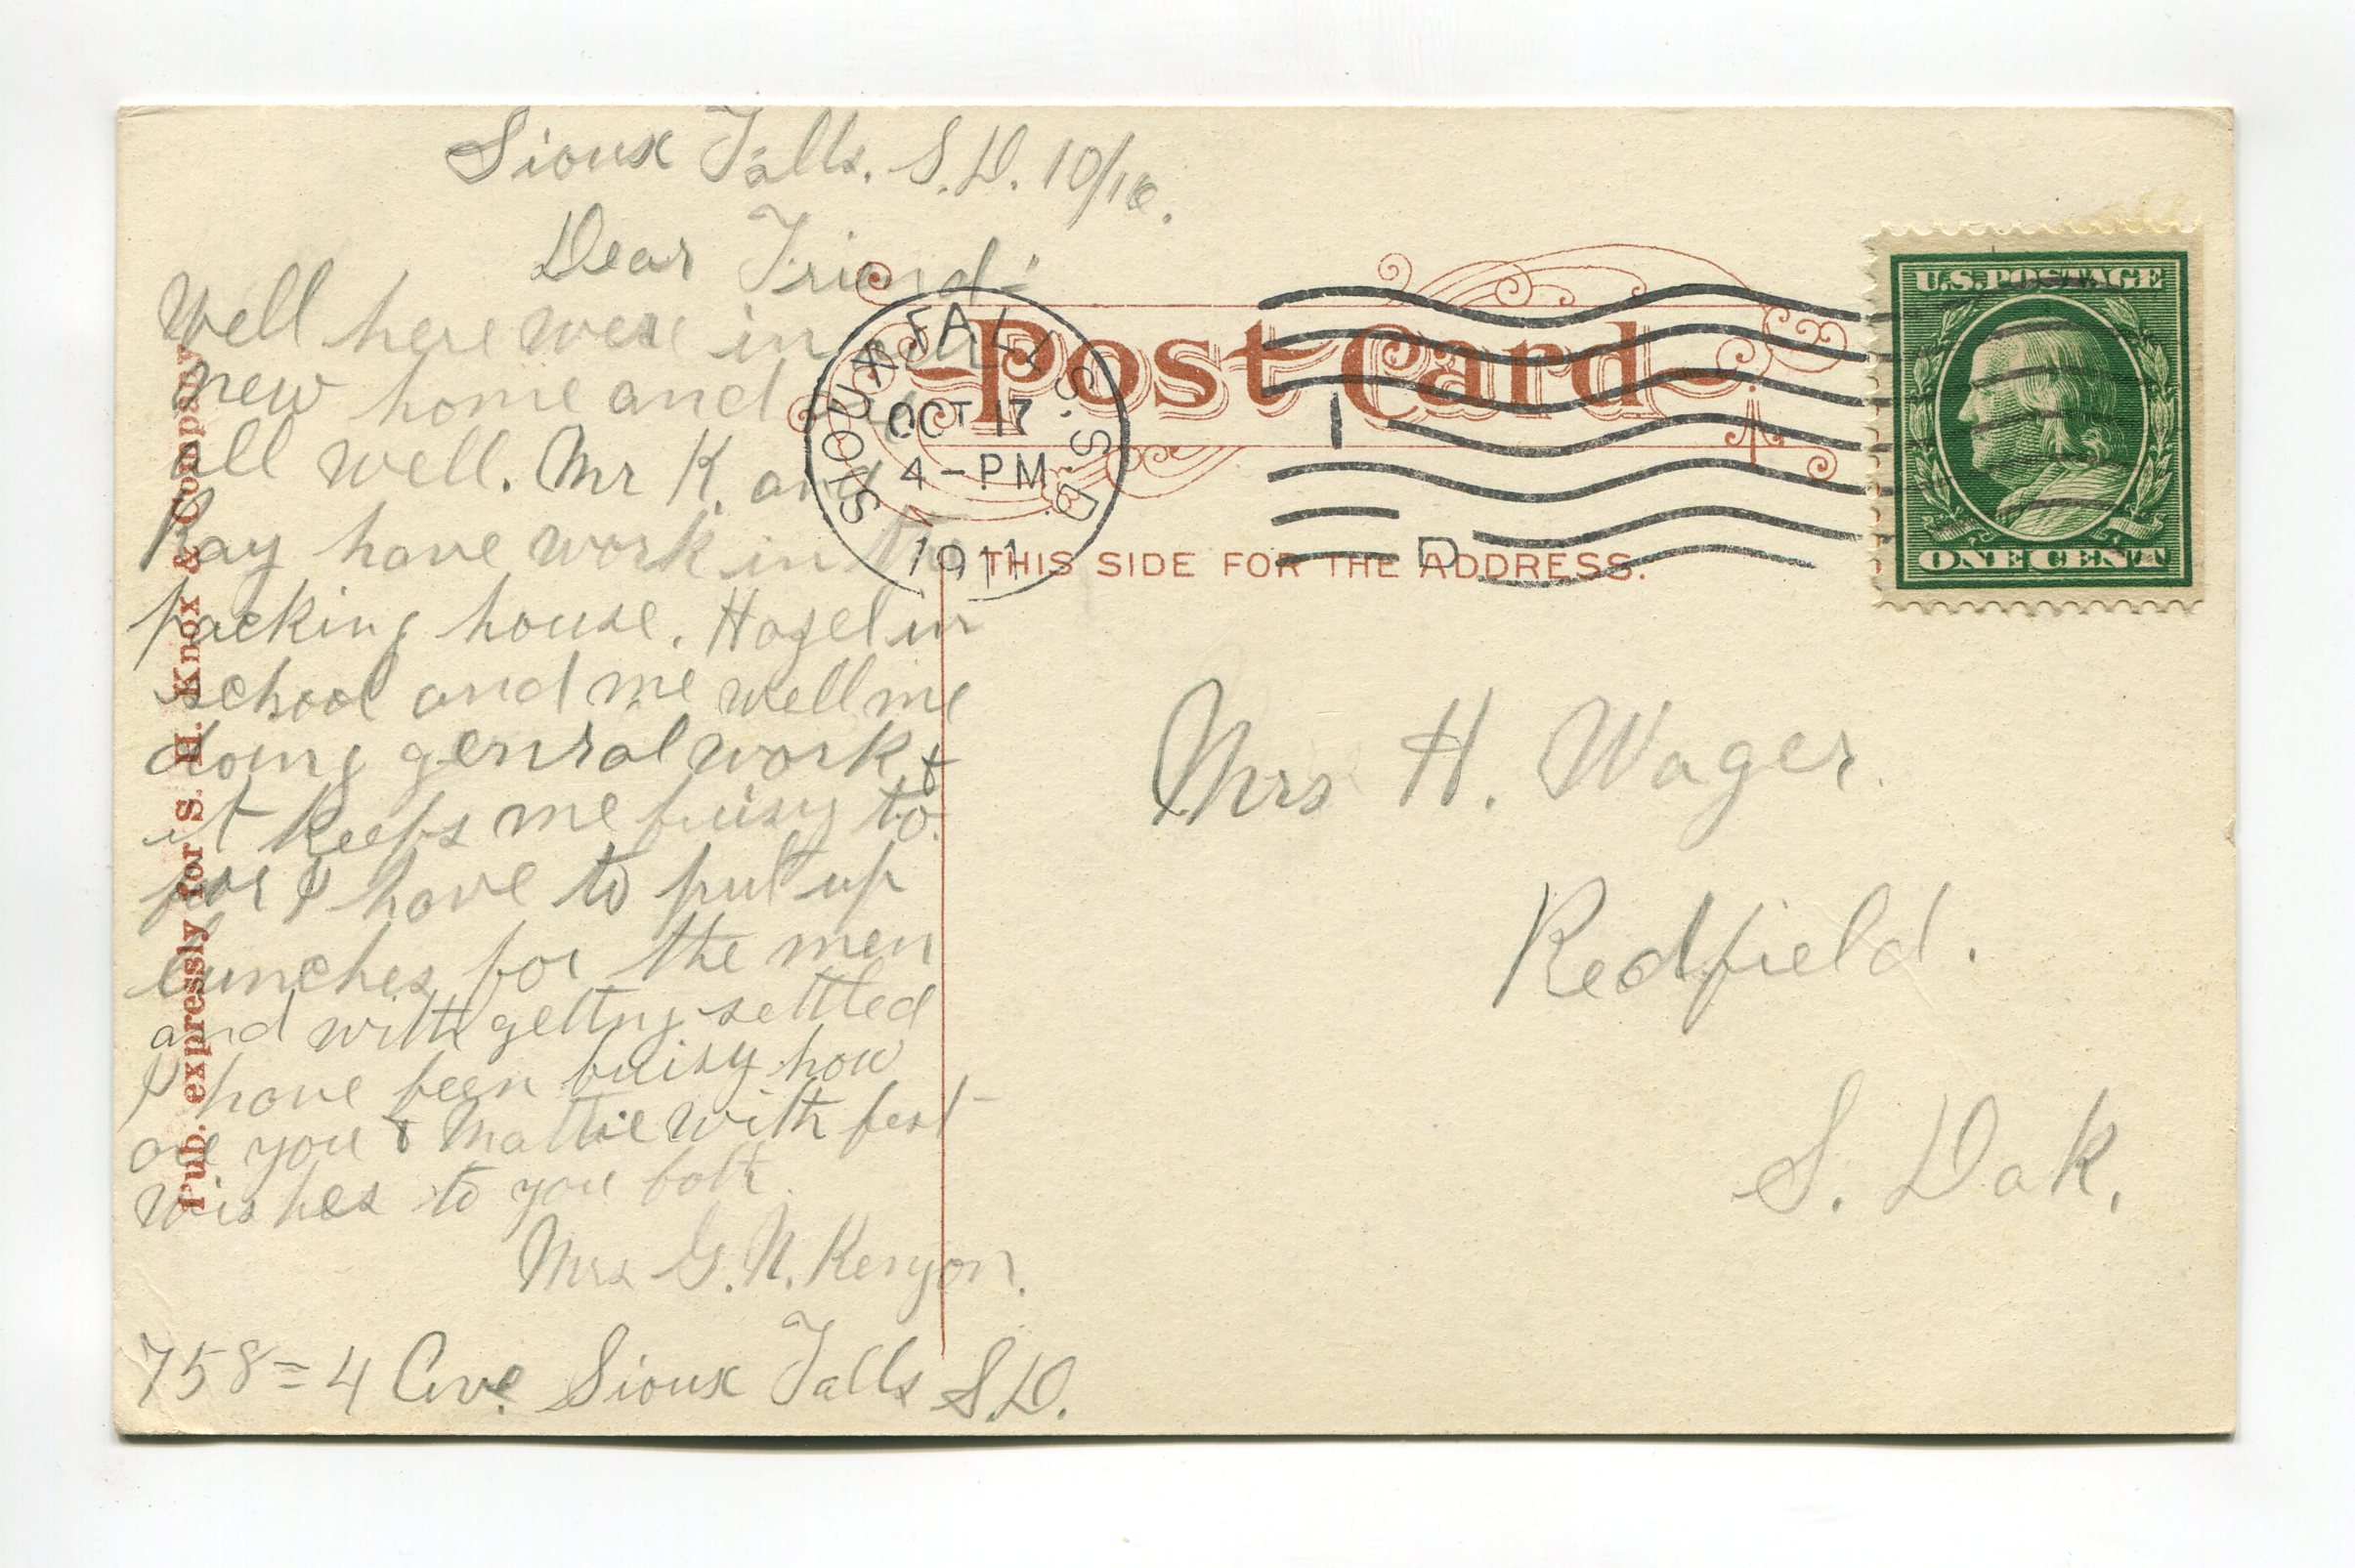 Sioux Falls. S.D. 10/16.
Dear Friend:
Well here were in our
new home and
all well. Mr K. and
Ray have work in the
packing house. Hazel in
school and me well me
doing genral work &
it keeps me buisy to.
for I have to put up
lunches for the men
and with getting settled
I have been buisy how
are you & Mattie with best
wishes to you both.
Mrs G. N. Kenyon.
758 = 4 Ave. Sioux Falls S.D.
Pub. expressly for S. H. Knox & Company
Post Card
SIOUX FALLS. S.D.
OCT 17
4-PM
1911
1
D
THIS SIDE FOR THE ADDRESS.
U.S. POSTAGE
ONE CENT
Mrs H. Wager.
Redfield.
S. Dak.